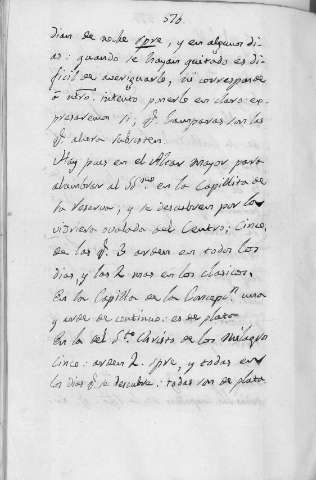 573.
dian de noche spre, y en algunos di-
as: quando se hayan quitado es di-
ficil de averiguarlo, ni corresponde
a nrõ. intento ponerlo en claro: ex-
presaremos si, q. Lamparas son las
q. ahora subsisten.
Hay pues en el Altar Mayor para
alumbrar al SSmo en la Capillita de
la reserva, y se descubren por los
vidriera ovalada del Centro; Cinco,
de las q. 3 arden en todos los
Dias, y las 2 mas en los clasicos.
En la Capilla de la Concepn. una
y arde de continuo: es de plata
En la del Sto Christo de los Milagros
Cinco: arden 2. spre, y todas en
los dias q. se descubre: todas son de plata